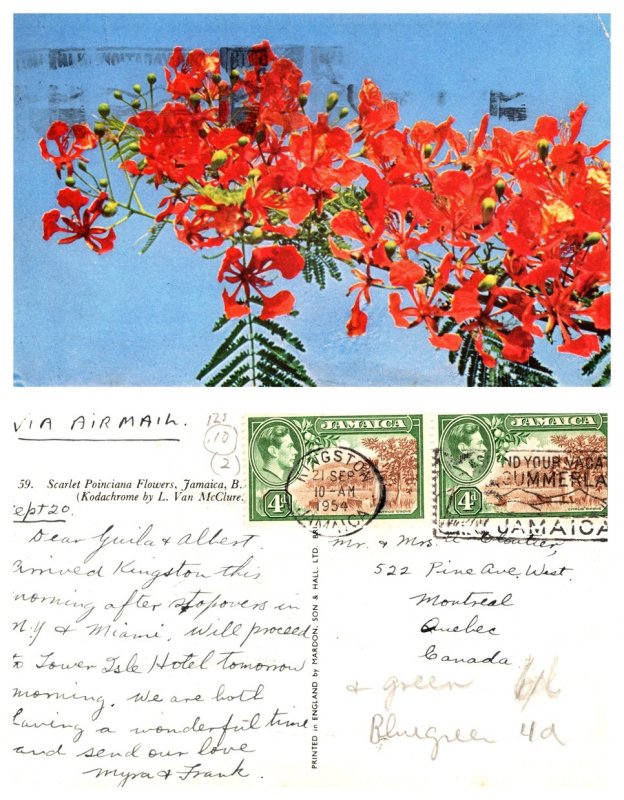 VIA AIRMAIL.
125
10
2
59. Scarlet Poinciana Flowers, Jamaica, B.
(Kodachrome by L. Van McClure.
ept 20
Dear Guila & Albert
Arrived Kingston this
morning after stopovers in
N.Y & Miami. Will proceed
to Tower Isle Hotel tomorrow
morning. We are both
having a wonderful time
and send our love
Myra & Frank
PRINTED IN ENGLAND by MARDON, SON & HALL. LTD. BRI
JAMAICA
4d
KINGSTON
21 SEP
10-AM
1954
JAMAICA
CITRUS GROVE
JAMAICA
4d
CITRUS GROVE
ND YOUR VACA
SUMMERLA
IN
JAMAICA
Mr. & Mrs. A Cloutier,
522 Pine Ave. West.
Montreal
Quebec
Canada
& green
Bluegreen 4d